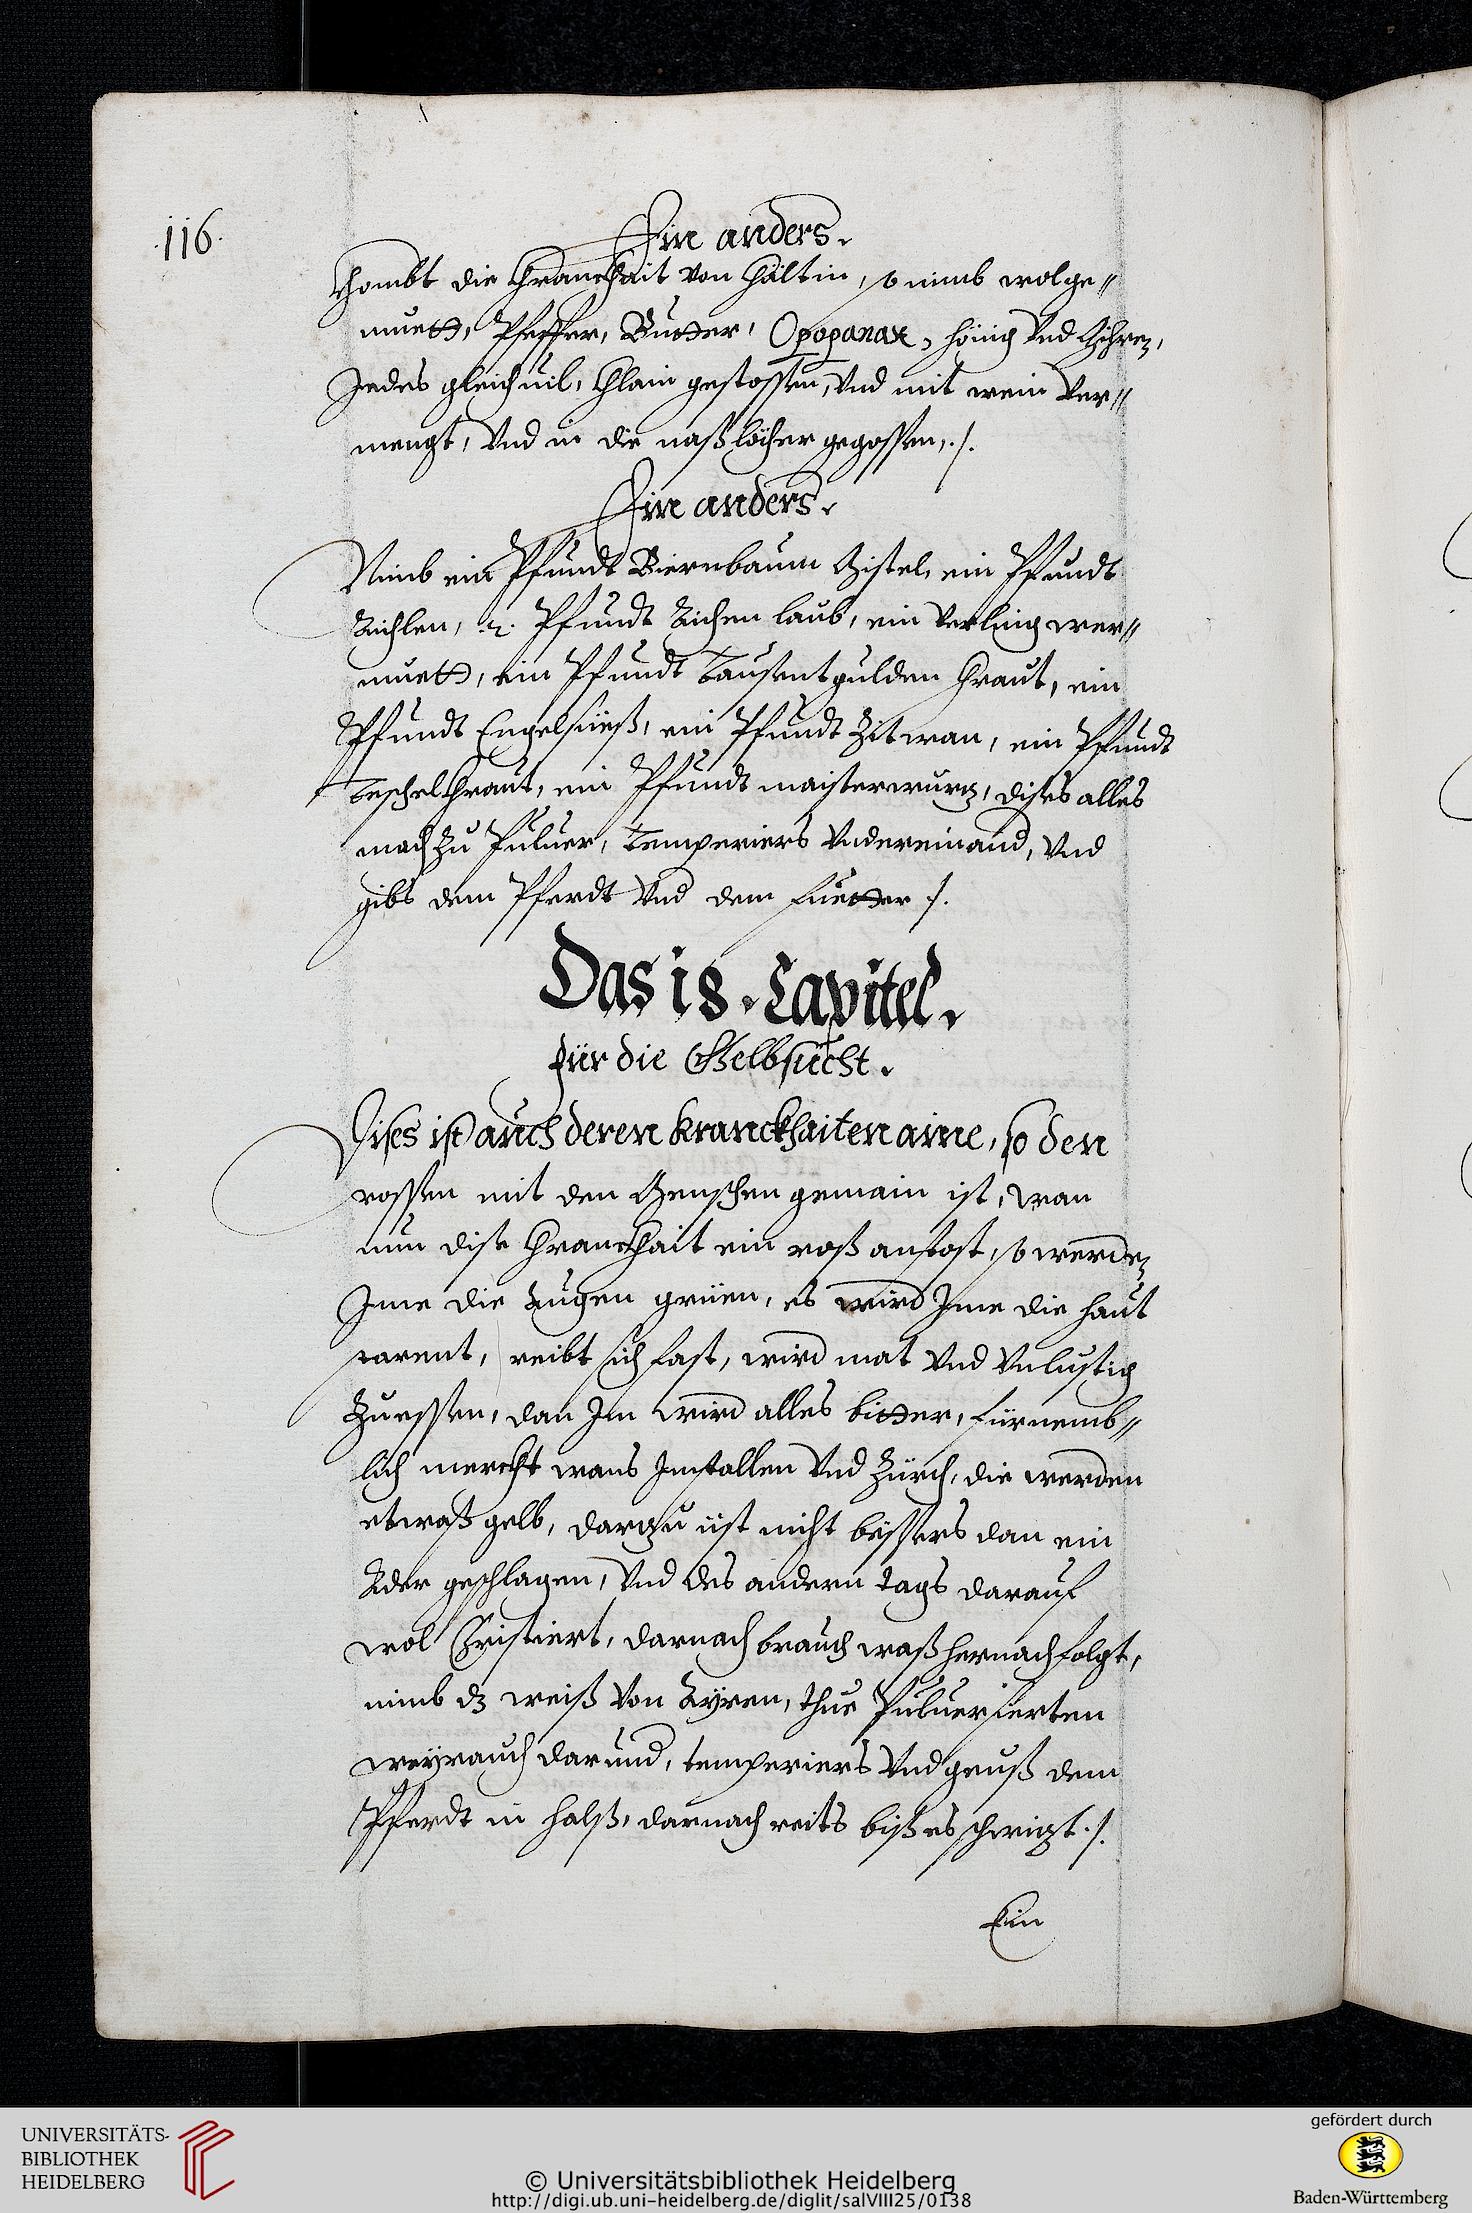 116.
Ein anders.
Khombt die Khranckhait von Khältin, so nimb wolge„
muett, Pfeffer, Butter, Opopanax, hönig vnd
Jedes gleichuil, Khlain gestossen, vnd mit wein ver„
mengt, vnd in die naßlöcher gegossen ./.
Ein anders.
Nimb ein Pfundt Biernbaum Mistel, ein Pfundt
Aichlen, .2. Pfundt Aichen laub, ein wer„
muett, ein Pfundt Tausentgulden Khraut, ein
Pfundt Engelsüeß, ein Pfundt Zitwan, ein Pfundt
Teschelkhraut, ein Pfundt maisterwurz, dises alles
mach zu Puluer, Temperiers vndereinand, vnd
gibs dem Pferdt vnd dem fuetter ./.
Das 18. Capitel.
für die Gelbsücht.
Dises ist auch deren kranckhaiten aine, so den
rossen mit den Menschen gemain ist, wan
nun dise Khranckhait ein roß anstost, so werden
Jme die Augen grüen, es wird Jme die haut
reibt sich fast, wird mat vnd vnlustig
zuessen, dan Jm wird alles bitter, fürnemb„
lich merckht wans Jmstallen vnd die werden
etwaß gelb, darzu ist nicht bessers dan ein
Ader geschlagen, vnd des andern tags darauf
wol Cristiert, darnach brauch waß hernach folgt,
nimb dz weiß von Ayren, thue Puluerisierten
weyrauch darund, temperiers vnd geuß dem
Pferdt in halß, darnach reits biß es schwizt ./.
Ein
UNIVERSITÄTS-
BIBLIOTHEK
HEIDELBERG
© Universitätsbibliothek Heidelberg
http://digi.ub.uni-heidelberg.de/diglit/salVIII25/0138
gefördert durch
Baden-Württemberg